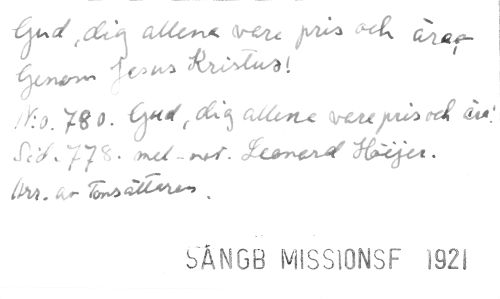 Gud, dig allena vare pris och ära,
Genom Jesus Kristus!
N:o. 780. Gud, dig allena vare pris och ära!
Sid. 778. mel-not. Leonard Höijer.
Arr. av Tonsättaren.
SÅNGB MISSIONSF 1921